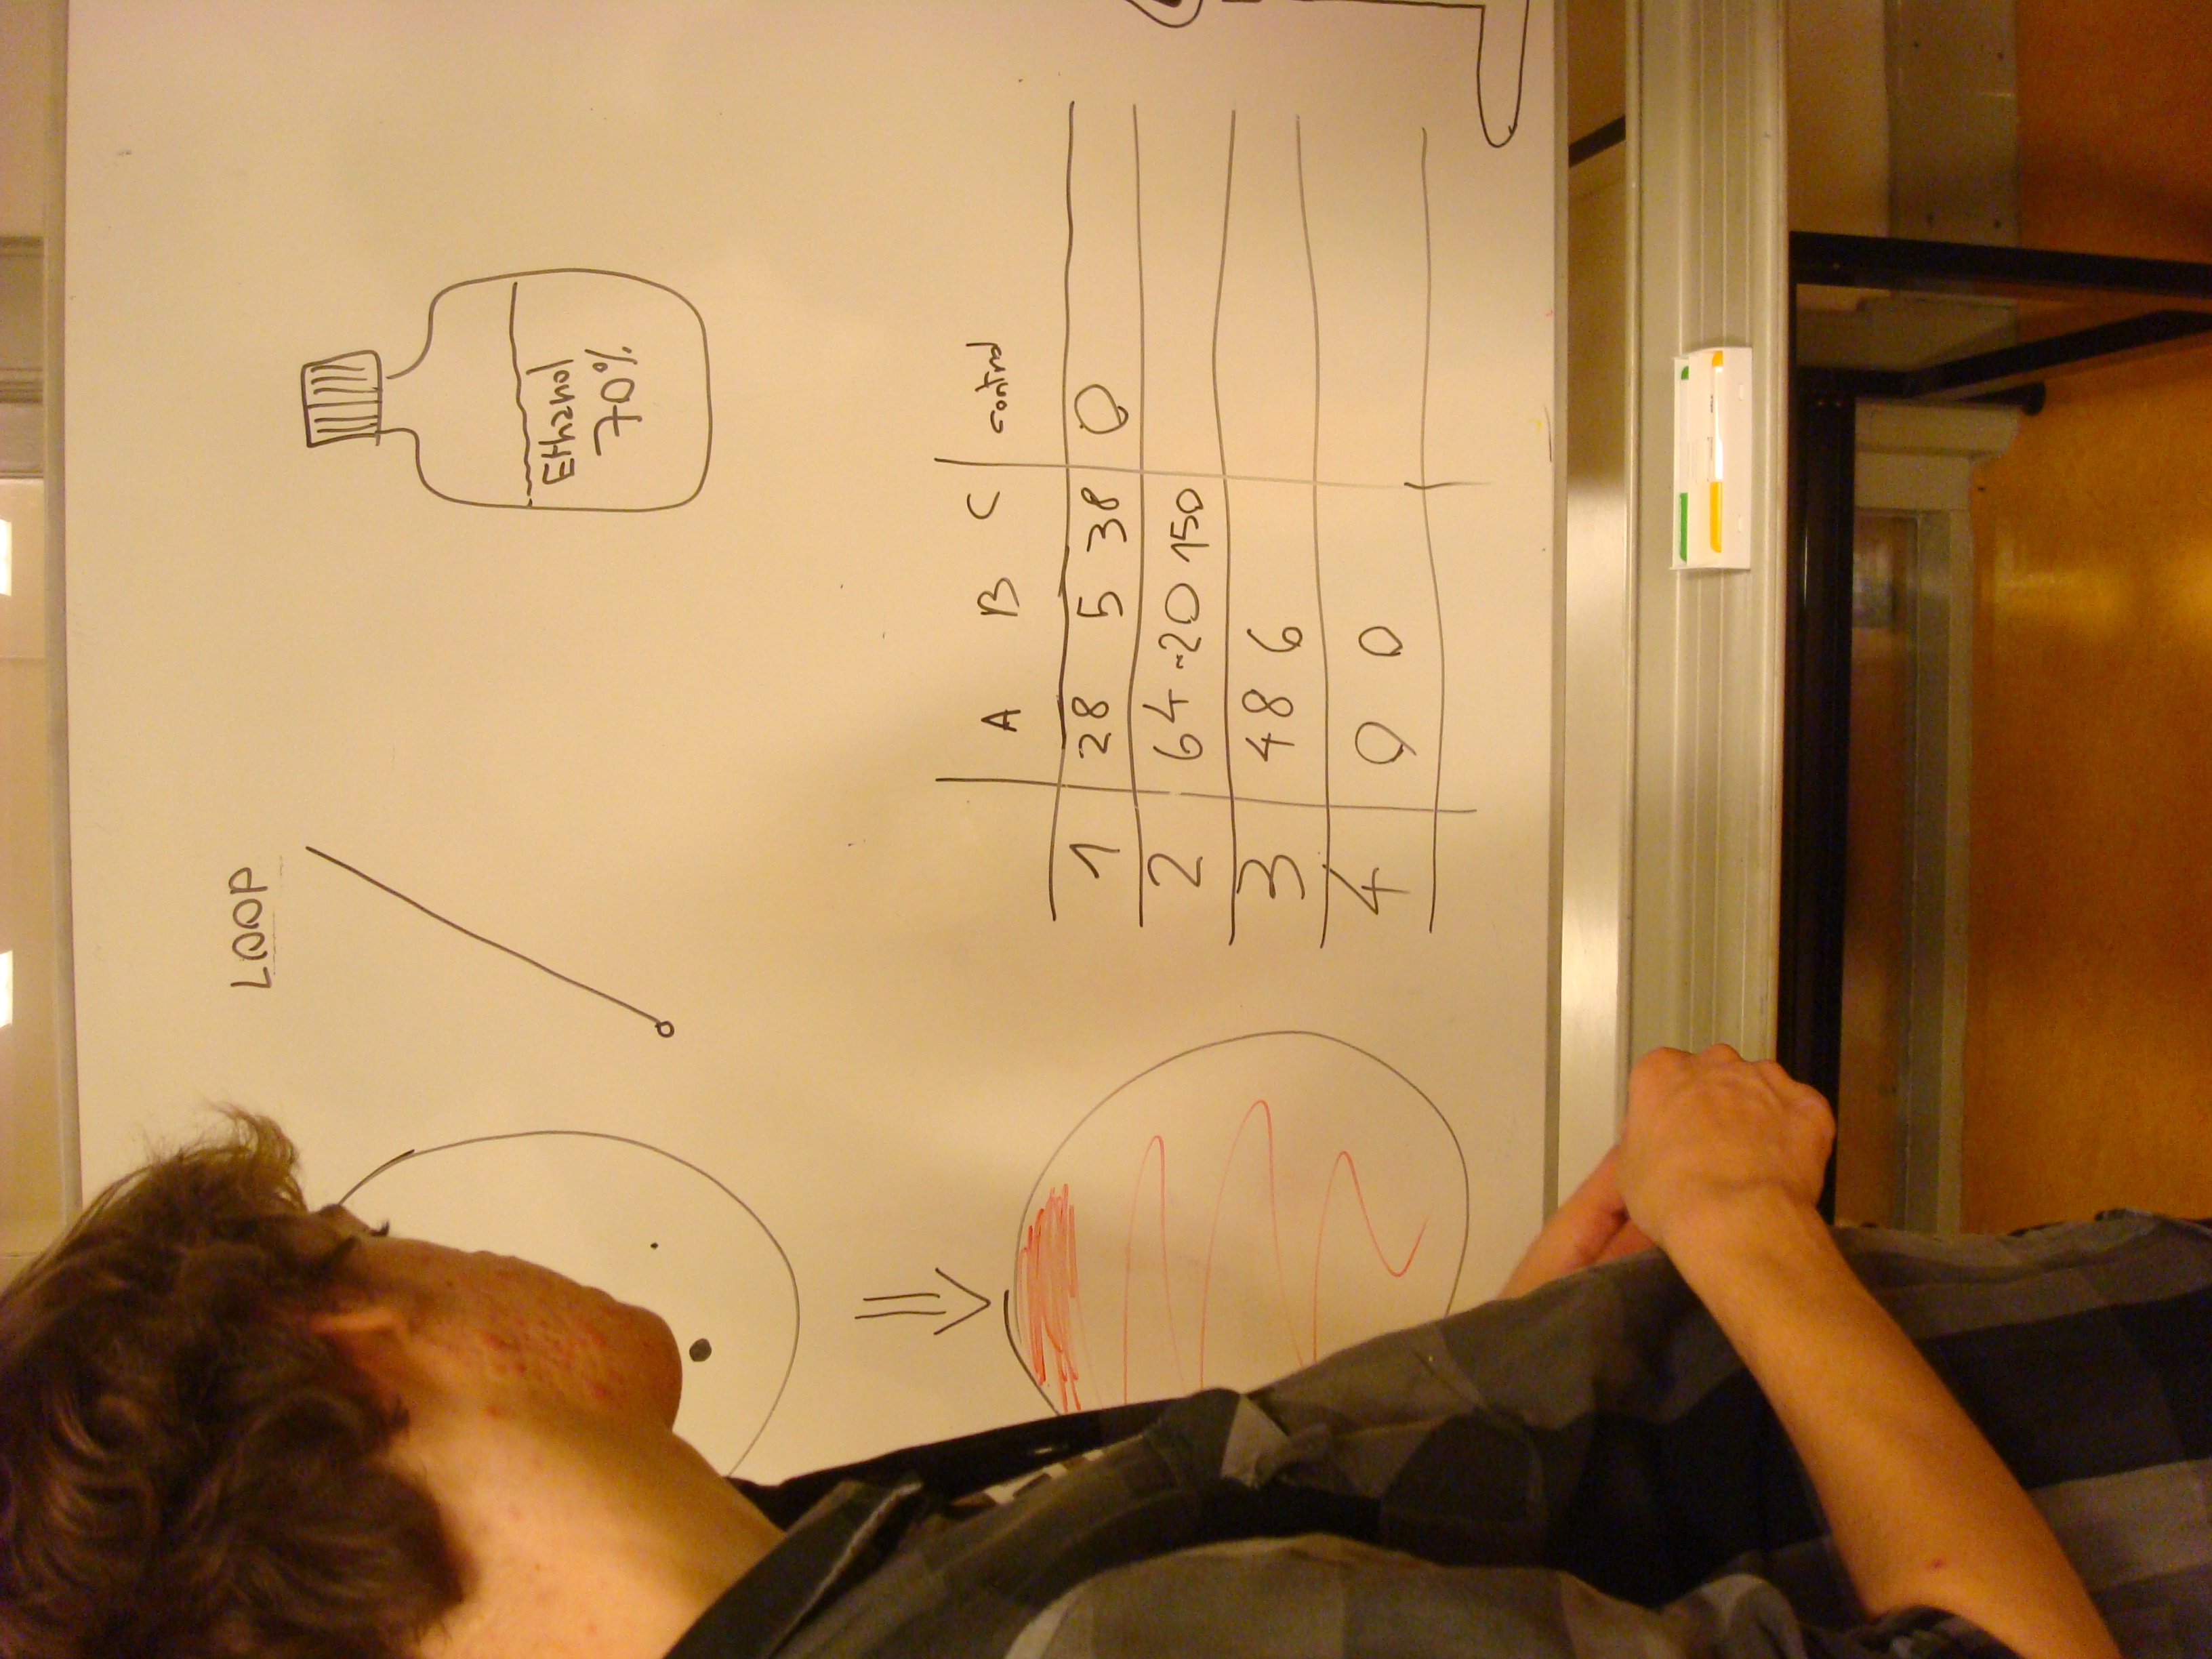 LOOP
Ethanol
70%
A B C control
1 28 5 38 0
2 64 ~20 150
3 48 6
4 0 0